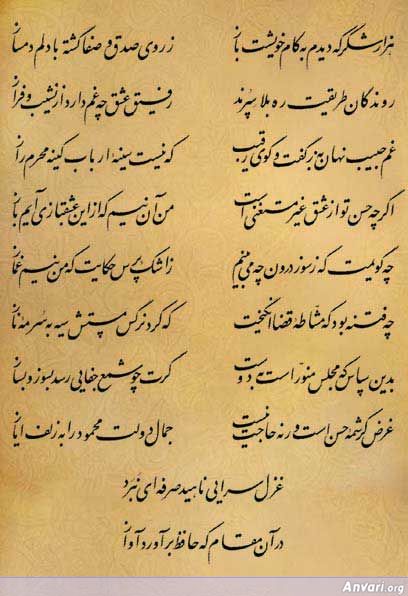 هزار شکر که دیدم به کام خویشت باز ز روی صدق و صفا گشته با دلم دمساز
روندگان طریقت ره بلا سپرند رفیق عشق چه غم دارد از نشیب و فراز
غم حبیب نهان به ز گفت و گوی رقیب که نیست سینهٔ ارباب کینه محرم راز
اگر چه حسن تو از عشق غیر مستغنی است من آن نیم که از این عشقبازی آیم باز
چه گویمت که ز سوز درون چه می بینم ز اشک پرس حکایت که من نیم غماز
چه فتنه بود که مشاطهٔ قضا انگیخت که کرد نرگس مستش سیه به سرمه ناز
بدین سپاس که مجلس منور است به دوست گرت چو شمع جفایی رسد بسوز و بساز
غرض کرشمهٔ حسن است ور نه حاجت نیست جمال دولت محمود را به زلف ایاز
غزل سرایی ناهید صرفه ای نبرد
در آن مقام که حافظ برآورد آواز
Anvari.org